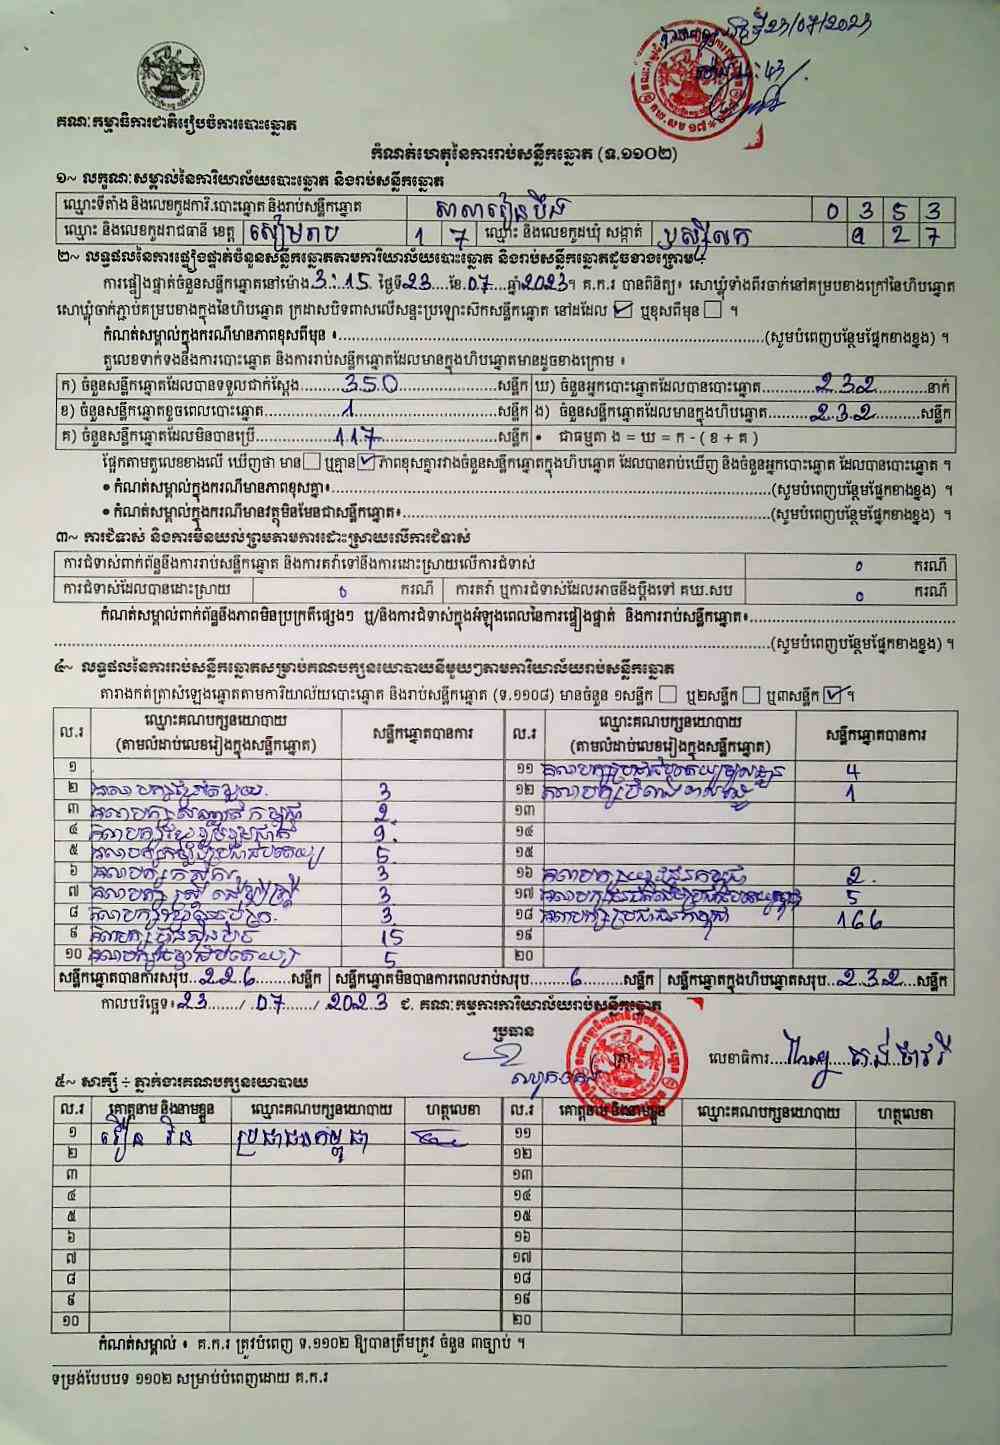 ថ្ងៃទី23/07/2023
ម៉ោង : 43
គ.ឃ.សប ១៧
គណៈកម្មាធិការជាតិរៀបចំការបោះឆ្នោត
កំណត់ហេតុនៃការរាប់សន្លឹកឆ្នោត (ទ.១១០២)
១~ លក្ខណៈសម្គាល់នៃការិយាល័យបោះឆ្នោត និងរាប់សន្លឹកឆ្នោត
ឈ្មោះទីតាំង និងលេខកូដការិ.បោះឆ្នោត និងរាប់សន្លឹកឆ្នោត សាលារៀនបឹង 0 3 5 3
ឈ្មោះ និងលេខកូដរាជធានី ខេត្ត សៀមរាប 1 7 ឈ្មោះ និងលេខកូដឃុំ សង្កាត់ 9 2 7
២~ លទ្ធផលនៃការផ្ទៀងផ្ទាត់ចំនួនសន្លឹកឆ្នោតតាមការិយាល័យបោះឆ្នោត និងរាប់សន្លឹកឆ្នោតដូចខាងក្រោម÷
ការផ្ទៀងផ្ទាត់ចំនួនសន្លឹកឆ្នោតនៅម៉ោង 3:15 ថ្ងៃទី23....ខែ.07....ឆ្នាំ2023។ គ.ក.រ បានពិនិត្យ៖ សោឃ្លុំទាំងពីរចាក់នៅគម្របខាងក្រៅនៃហិបឆ្នោត
សោឃ្លុំចាក់ភ្ជាប់គម្របខាងក្នុងនៃហិបឆ្នោត ក្រដាសបិទពាសលើសន្ទះប្រឡោះស៊កសន្លឹកឆ្នោត នៅដដែល ☑ ឬខុសពីមុន ☐ ។
កំណត់សម្គាល់ក្នុងករណីមានភាពខុសពីមុន ៖..........(សូមបំពេញបន្ថែមផ្នែកខាងខ្នង) ។
តួលេខទាក់ទងនឹងការបោះឆ្នោត និងការរាប់សន្លឹកឆ្នោតដែលមានក្នុងហិបឆ្នោតមានដូចខាងក្រោម ៖
ក) ចំនួនសន្លឹកឆ្នោតដែលបានទទួលជាក់ស្តែង..........350..........សន្លឹក ឃ) ចំនួនអ្នកបោះឆ្នោតដែលបានបោះឆ្នោត..........232..........នាក់
ខ) ចំនួនសន្លឹកឆ្នោតខូចពេលបោះឆ្នោត..........1..........សន្លឹក ង) ចំនួនសន្លឹកឆ្នោតដែលមានក្នុងហិបឆ្នោត..........232..........សន្លឹក
គ) ចំនួនសន្លឹកឆ្នោតដែលមិនបានប្រើ..........117..........សន្លឹក • ជាធម្មតា ង = ឃ = ក - ( ខ + គ )
ផ្អែកតាមតួលេខខាងលើ ឃើញថា មាន ☐ ឬគ្មាន ☑ ភាពខុសគ្នារវាងចំនួនសន្លឹកឆ្នោតក្នុងហិបឆ្នោត ដែលបានរាប់ឃើញ និងចំនួនអ្នកបោះឆ្នោត ដែលបានបោះឆ្នោត ។
• កំណត់សម្គាល់ក្នុងករណីមានភាពខុសគ្នា៖..........(សូមបំពេញបន្ថែមផ្នែកខាងខ្នង) ។
• កំណត់សម្គាល់ក្នុងករណីមានវត្ថុមិនមែនជាសន្លឹកឆ្នោត៖..........(សូមបំពេញបន្ថែមផ្នែកខាងខ្នង) ។
៣~ ការជំទាស់ និងការមិនយល់ព្រមតាមការដោះស្រាយលើការជំទាស់
ការជំទាស់ពាក់ព័ន្ធនឹងការរាប់សន្លឹកឆ្នោត និងការតវ៉ាទៅនឹងការដោះស្រាយលើការជំទាស់ 0 ករណី
ការជំទាស់ដែលបានដោះស្រាយ 0 ករណី ការតវ៉ា ឬការជំទាស់ដែលអាចនឹងប្តឹងទៅ គឃ.សប 0 ករណី
កំណត់សម្គាល់ពាក់ព័ន្ធនឹងភាពមិនប្រក្រតីផ្សេងៗ ឬ/និងការជំទាស់ក្នុងអំឡុងពេលនៃការផ្ទៀងផ្ទាត់ និងការរាប់សន្លឹកឆ្នោត៖..........
..........(សូមបំពេញបន្ថែមផ្នែកខាងខ្នង) ។
៤~ លទ្ធផលនៃការរាប់សន្លឹកឆ្នោតសម្រាប់គណបក្សនយោបាយនីមួយៗតាមការិយាល័យរាប់សន្លឹកឆ្នោត
តារាងកត់ត្រាសំឡេងឆ្នោតតាមការិយាល័យបោះឆ្នោត និងរាប់សន្លឹកឆ្នោត (ទ.១១០៨) មានចំនួន ១សន្លឹក ☐ ឬ២សន្លឹក ☐ ឬ៣សន្លឹក ☑ ។
ល.រ ឈ្មោះគណបក្សនយោបាយ (តាមលំដាប់លេខរៀងក្នុងសន្លឹកឆ្នោត) សន្លឹកឆ្នោតបានការ ល.រ ឈ្មោះគណបក្សនយោបាយ (តាមលំដាប់លេខរៀងក្នុងសន្លឹកឆ្នោត) សន្លឹកឆ្នោតបានការ
១ ១១ គណបក្សប្រជាធិបតេយ្យមូលដ្ឋាន 4
២ គណបក្ស 3 ១២ គណបក្ស 1
៣ គណបក្ស កម្ពុជា 2 ១៣
៤ គណបក្ស 9 ១៤
៥ គណបក្ស ប្រជាធិបតេយ្យ 5 ១៥
៦ គណបក្សកសិករ 3 ១៦ គណបក្ស កម្ពុជា 2
៧ គណបក្ស ស្ត្រី ដើម្បីស្ត្រី 3 ១៧ គណបក្ស 5
៨ គណបក្ស 3 ១៨ គណបក្សប្រជាជនកម្ពុជា 166
៩ គណបក្ស ហ៊្វុនស៊ិនប៉ិច 15 ១៩
១០ គណបក្ស ធម្មាធិបតេយ្យ 5 ២០
សន្លឹកឆ្នោតបានការសរុប..226......សន្លឹក សន្លឹកឆ្នោតមិនបានការពេលរាប់សរុប......6......សន្លឹក សន្លឹកឆ្នោតក្នុងហិបឆ្នោតសរុប..232...សន្លឹក
កាលបរិច្ឆេទ៖23....../.07....../.2023 ជ. គណៈកម្មការការិយាល័យរាប់សន្លឹកឆ្នោត
ប្រធាន
លេខាធិការ
៥~ សាក្សី ÷ ភ្នាក់ងារគណបក្សនយោបាយ
ល.រ គោត្តនាម និងនាមខ្លួន ឈ្មោះគណបក្សនយោបាយ ហត្ថលេខា ល.រ គោត្តនាម និងនាមខ្លួន ឈ្មោះគណបក្សនយោបាយ ហត្ថលេខា
១ រឿន ប្រជាជនកម្ពុជា ១១
២ ១២
៣ ១៣
៤ ១៤
៥ ១៥
៦ ១៦
៧ ១៧
៨ ១៨
៩ ១៩
១០ ២០
កំណត់សម្គាល់ ៖ គ.ក.រ ត្រូវបំពេញ ទ.១១០២ ឱ្យបានត្រឹមត្រូវ ចំនួន ៣ច្បាប់ ។
ទម្រង់បែបបទ ១១០២ សម្រាប់បំពេញដោយ គ.ក.រ